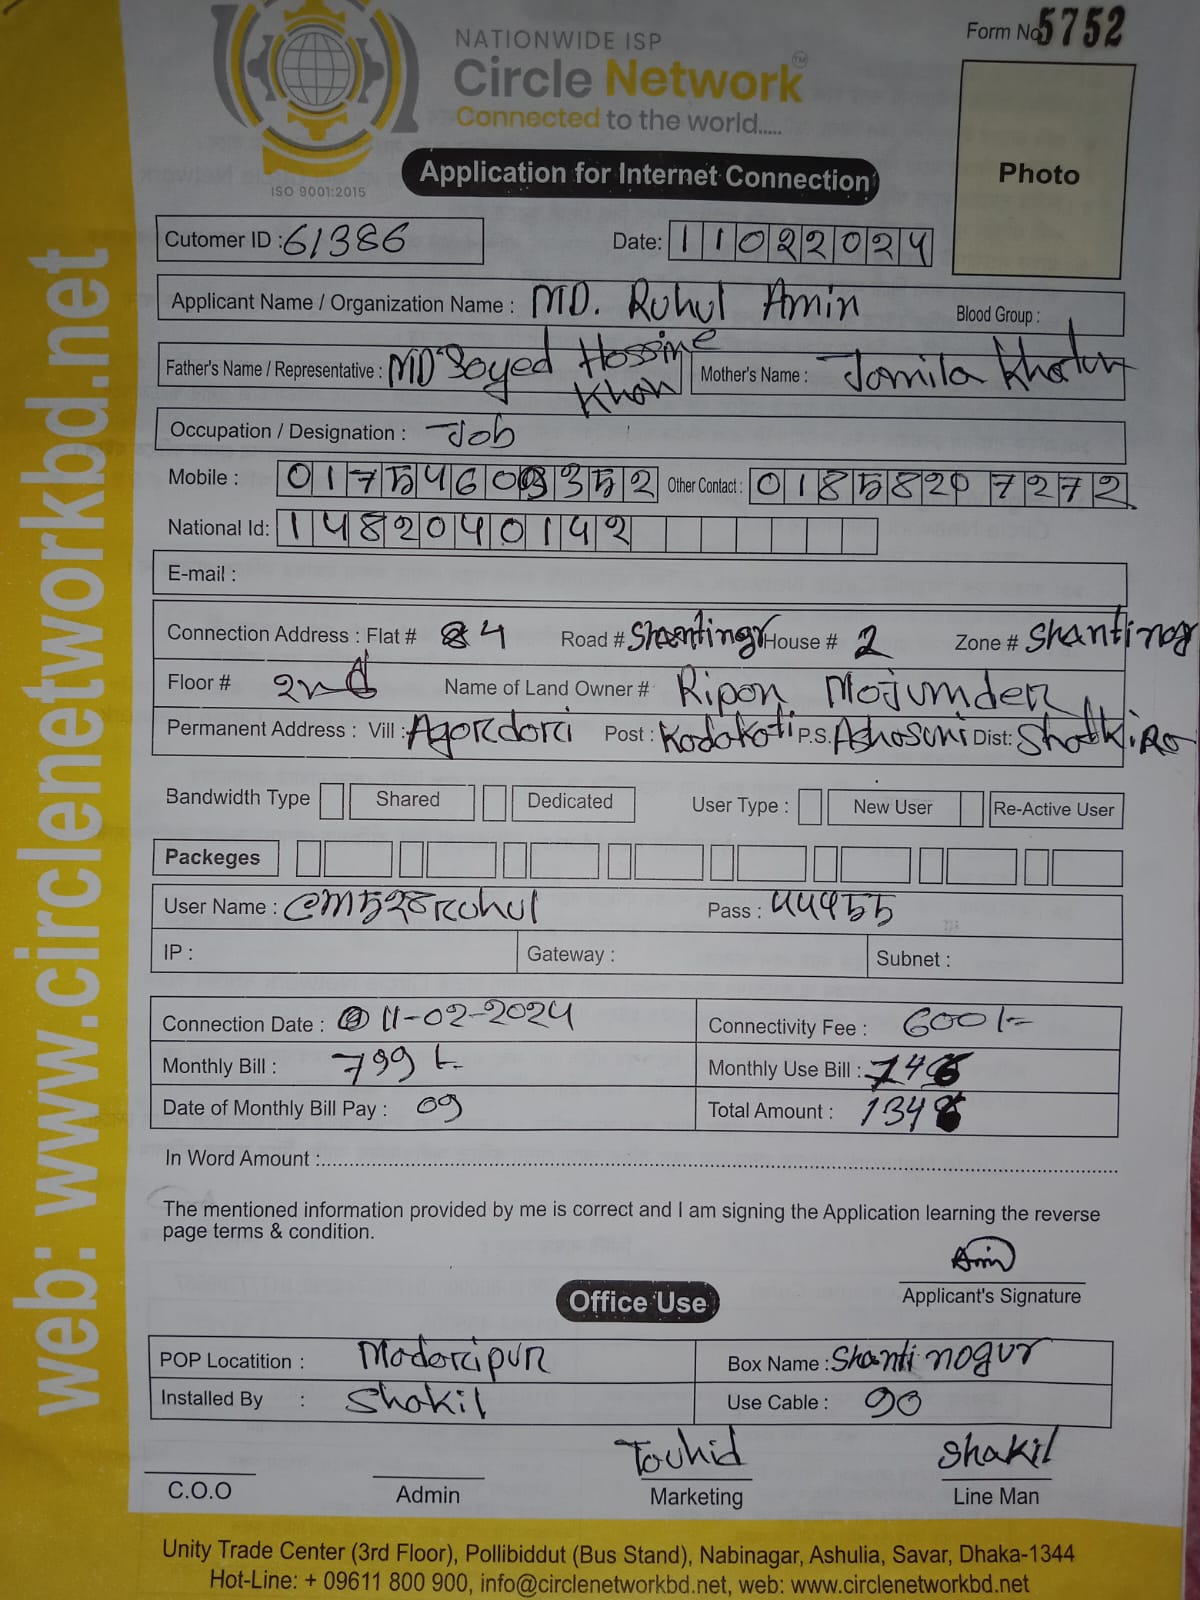 NATIONWIDE ISP
Circle Network™
Connected to the world.....
ISO 9001:2015
Form No 5752
Photo
Application for Internet Connection
Cutomer ID : 61386 Date: 11022024
Applicant Name / Organization Name : MD. Ruhul Amin Blood Group :
Father's Name / Representative : MD Soyed Hossine Khan Mother's Name : Jomila Khatun
Occupation / Designation : Job
Mobile : 01754609352 Other Contact : 01858207272
National Id: 1482040142
E-mail :
Connection Address : Flat # 4 Road # Shantingr House # 2 Zone # Shantinogr
Floor # 2nd Name of Land Owner # Ripon Mojumder
Permanent Address : Vill : Agordari Post : Kodakoti P.S. Ashosuni Dist: Shatkira
Bandwidth Type Shared Dedicated User Type : New User Re-Active User
Packeges
User Name : Pass :
IP : Gateway : Subnet :
Connection Date : 11-02-2024 Connectivity Fee : 600/-
Monthly Bill : 799 Monthly Use Bill :
Date of Monthly Bill Pay : 09 Total Amount :
In Word Amount :
The mentioned information provided by me is correct and I am signing the Application learning the reverse
page terms & condition.
Amin
Applicant's Signature
Office Use
POP Locatition : Madaripur Box Name : Shanti nogur
Installed By : Shakil Use Cable : 90
Touhid Shakil
C.O.O Admin Marketing Line Man
Unity Trade Center (3rd Floor), Pollibiddut (Bus Stand), Nabinagar, Ashulia, Savar, Dhaka-1344
Hot-Line: + 09611 800 900, info@circlenetworkbd.net, web: www.circlenetworkbd.net
web: www.circlenetworkbd.net